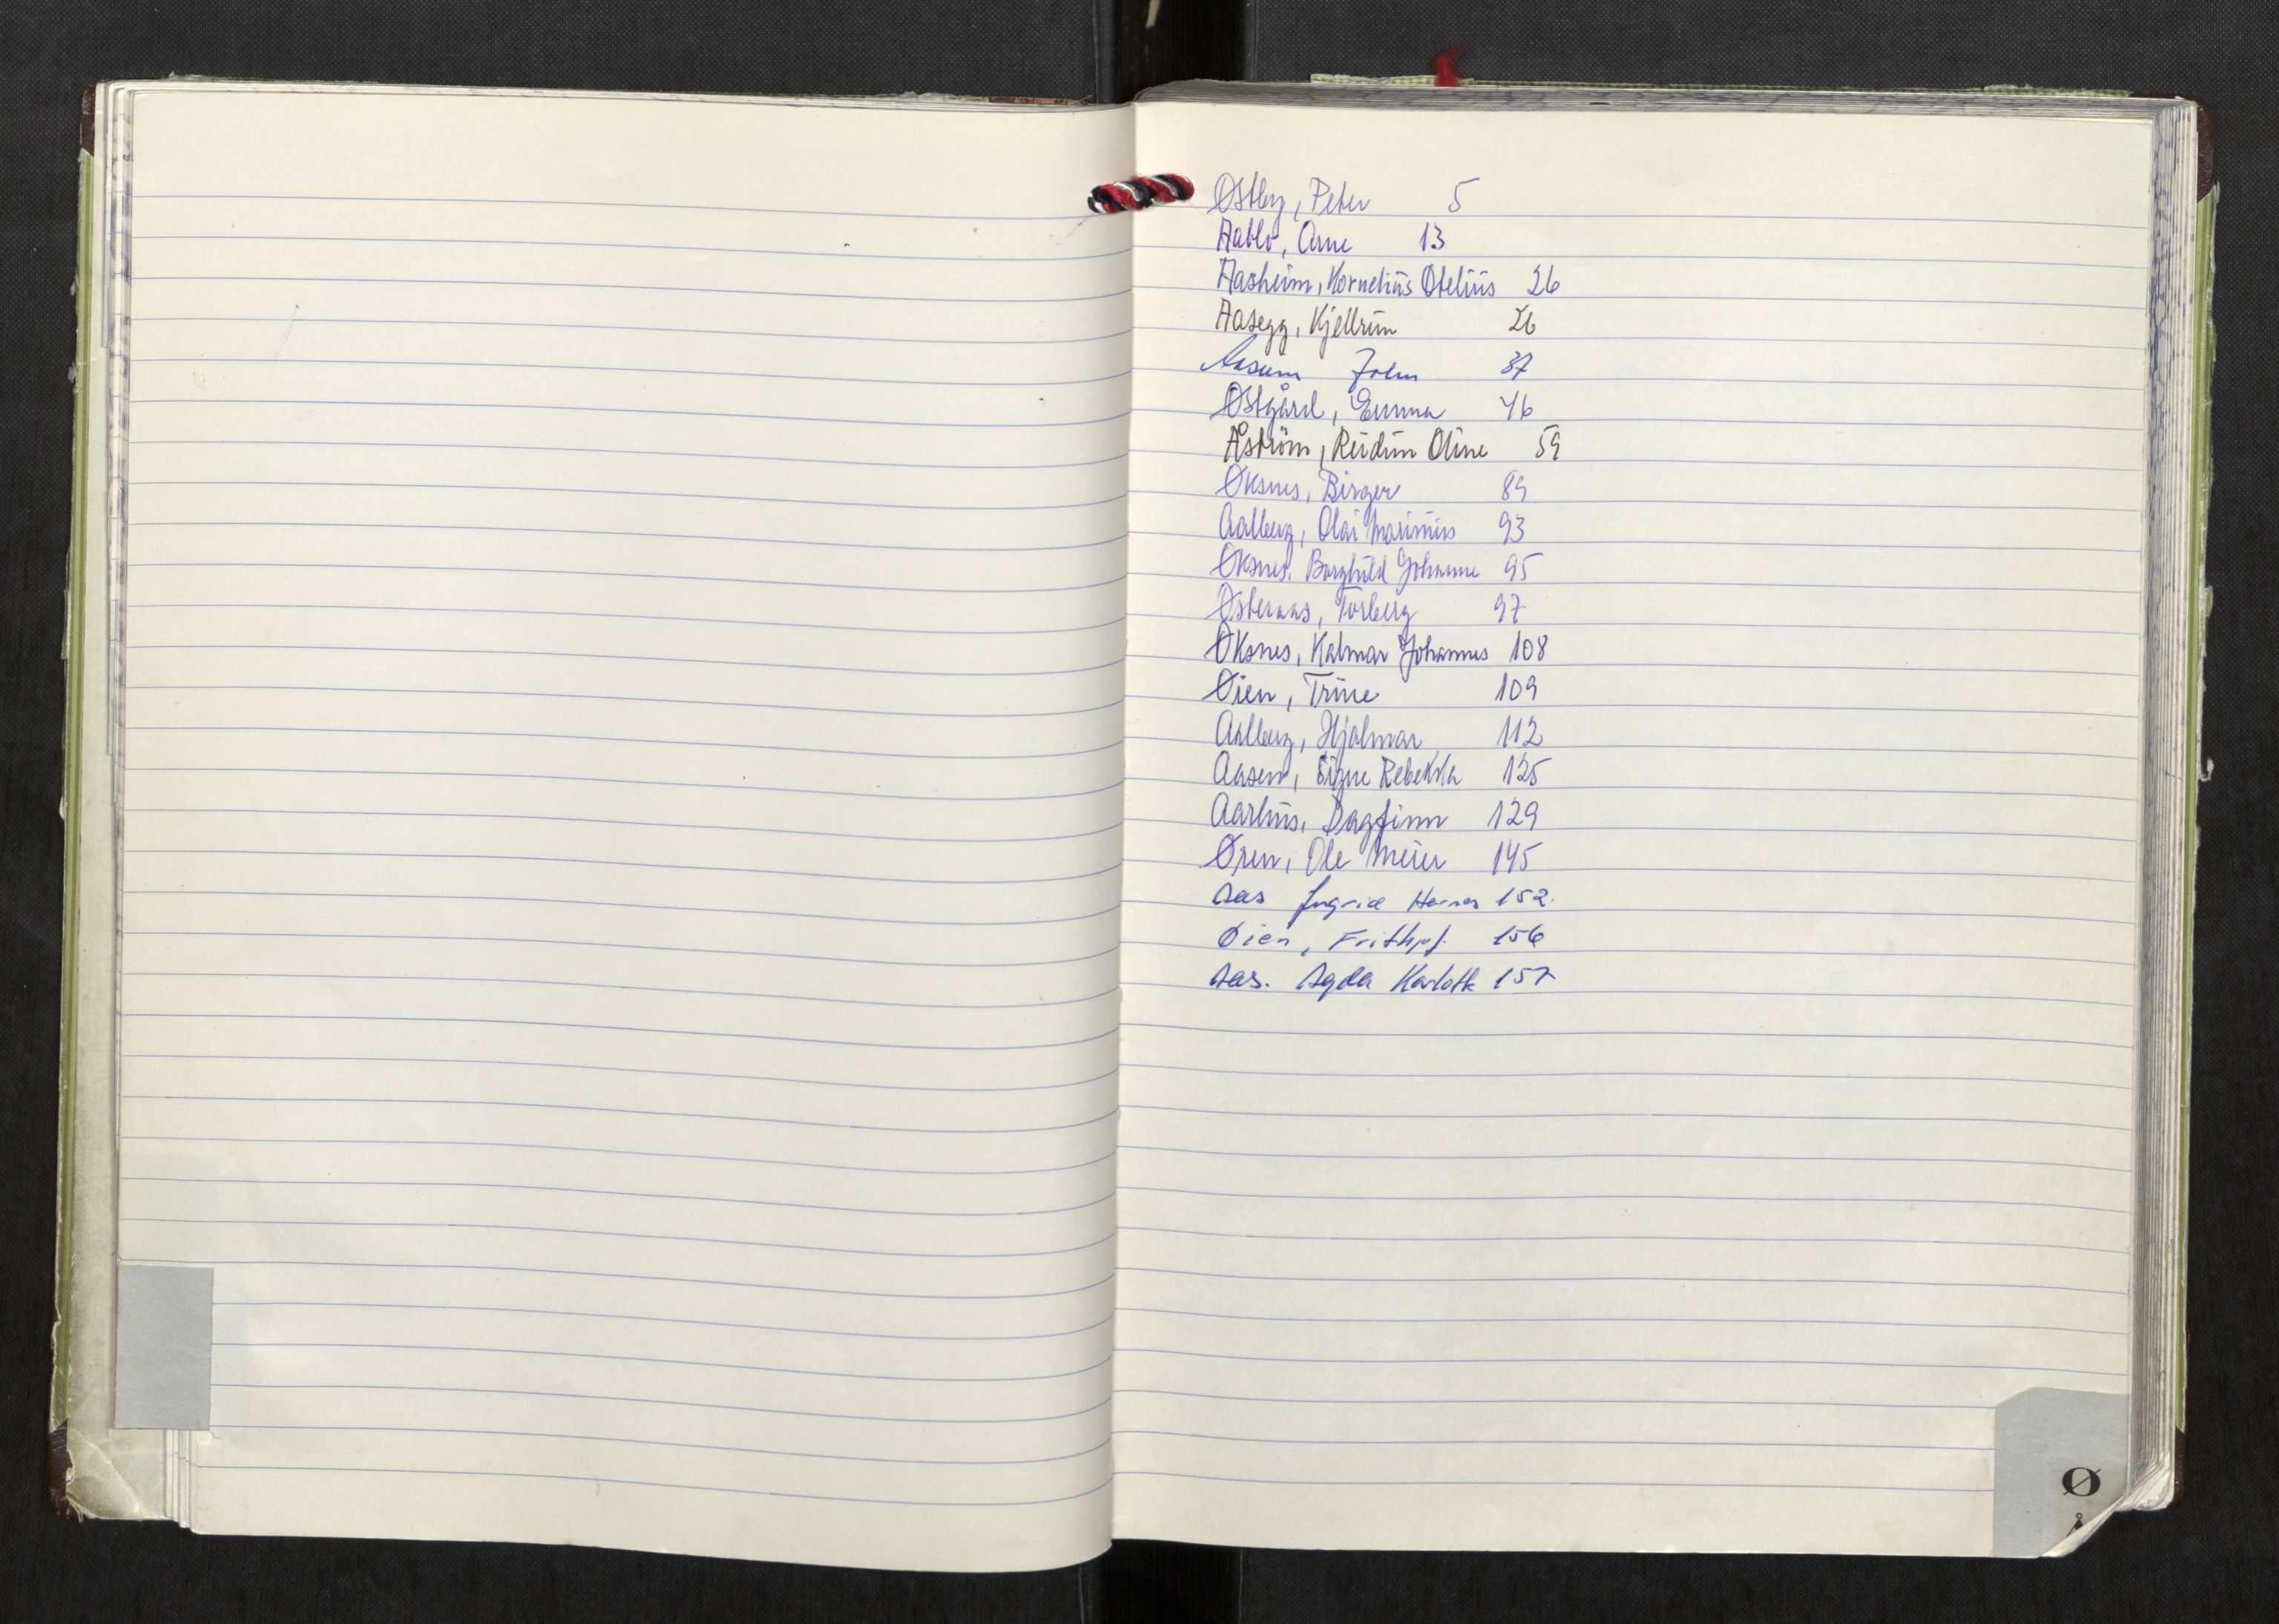 Østby, Peter 5
Aablo, Arne 13
Aasheim, Kornelius Otelius 26
Aasegg, Kjellrun 26
Aasum John 37
Østgård, Emma 46
Åström, Reidun Oline 59
Øksnes, Birger 89
Aalberg, Olai Marinius 93
Øksnes, Borghild Johanne 95
Østeraas, Torberg 97
Øksnes, Kalmar Johannes 108
Øien, Trine 109
Aalberg, Hjalmar 112
Aasen, Signe Rebekka 125
Aarhus, Dagfinn 129
Øren, Ole Meier 145
Aas Ingrid 152.
Øien, Frithjof. 156
Aas. Agda 157
Ø
Å